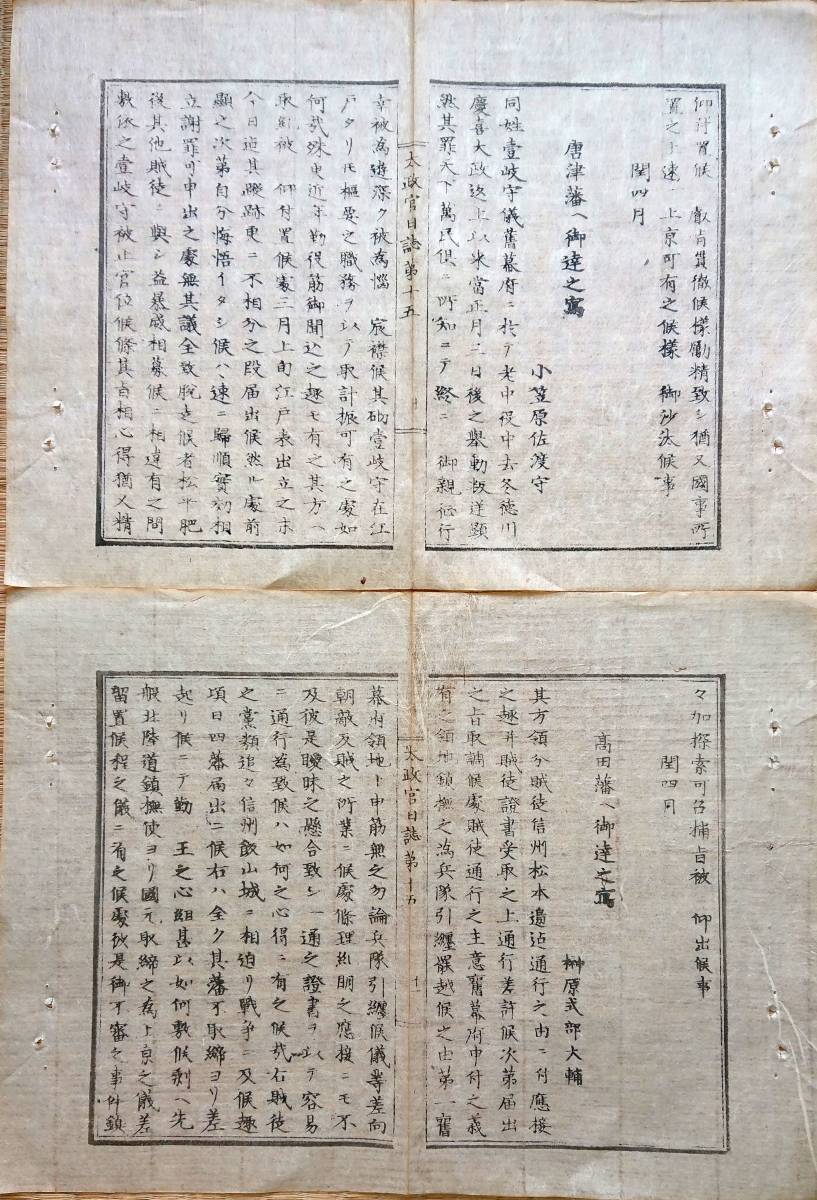 仰付置候 叡旨貫徹候様勵精致シ猶又國事所
置之上速ニ上京可有之候様 御沙汰候事
閏四月
唐津藩ヘ御達之寫
小笠原佐渡守
同姓壹岐守儀舊幕府ニ於テ老中役中去冬徳川
慶喜大政返上以来當正月三日後之擧動叛逆顕
然其罪天下萬民倶ニ所知ニテ終ニ 御親征行
太政官日誌第十五
十
幸被為遊深ク被為惱 宸襟候其砌壹岐守在江
戸タリトモ樞要之職務ヲ以テ取計振可有之處如
何哉殊ニ近年勤役筋御聞込之趣モ有之其方ヘ
取糺被 仰付置候處三月上旬江戸表出立之末
今日迄其蹤跡更ニ不相分之段届出候然ル處前
顕之次第自分悔悟イタシ候ハヽ速ニ歸順實効相
立謝罪可申出之處無其議全致脱走候者松平肥
後其他賊徒ニ與シ益暴威相募候ニ相違有之間
敷依之壹岐守被止官位候條其旨相心得猶又精
々加探索可召捕旨被 仰出候事
閏四月
高田藩ヘ御達之寫
榊原式部大輔
其方領分賊徒信州松本邊迄通行之由ニ付應接
之趣并賊徒證書受取之上通行差許候次第届出
之旨取調候處賊徒通行之主意舊幕府申付之義
有之領地鎮撫之為兵隊引纏罷越候之由第一舊
太政官日誌第十五
十一
幕府領地ト申筋無之勿論兵隊引纏候儀等差向
朝敵反賊之所業ニ候處條理糺明之應接ニモ不
及彼是曖昧之懸合致シ一通之證書ヲ以テ容易
ニ通行為致候ハ如何之心得ニ有之候哉右賊徒
之黨類追々信州飯山城ニ相迫リ戰争ニ及候趣
頃日四藩届出ニ候右ハ全ク其藩不取締ヨリ差
起リ候ニテ勤 王之心組甚以如何敷候剰ヘ先
般北陸道鎮撫使ヨリ國元取締之為上京之儀差
留置候程之儀ニ有之候處彼是御不審之事件鎮